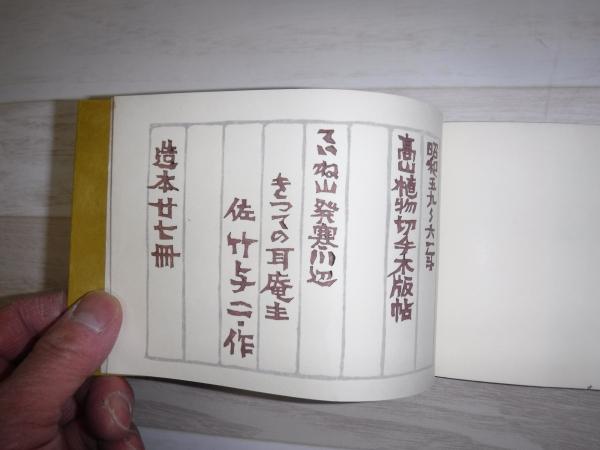 昭和五九〜六一年
高山植物切手木版帖
ていね山発寒川辺
きつつきの耳庵主
佐竹与二・作
造本廿七冊